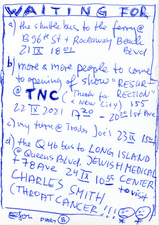 WAITING FOR
a) the shuttle bus to the ferry @
B 96th St + Rockaway Beach
Blvd
21 IX 18 01
b) more & more people to come
to opening of show "RESUR-
@ TNC (Theater for RECTION"
New City) 155
22 IX 2021 17 20 1st Ave
c) my turn @ Trader Joe's 23 IX
d) the Q46 bus to LONG ISLAND
@ Queens Blvd. JEWISH MEDICAL
+ 78 Ave 24 IX 10 05 CENTER
to visit
CHARLES SMITH
(THROAT CANCER!!!)